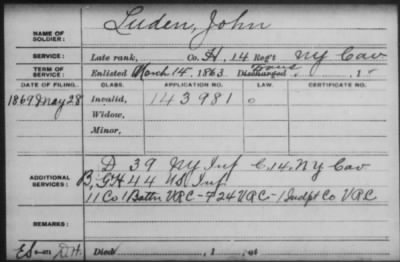 Luden, John
NAME OF SOLDIER:
SERVICE: Late rank, Co. H, 14 Reg't NY Cav
TERM OF SERVICE: Enlisted March 14, 1863. Discharged Trans, 1
DATE OF FILING. CLASS. APPLICATION NO. LAW. CERTIFICATE NO.
1869 May 28 Invalid, 143981 o
Widow,
Minor,
D 39 NY Inf C. 14. NY Cav
ADDITIONAL SERVICES: B, G & H 44 US Inf
11 Co 1 Battn VRC - F 24 VRC - 1 Indpt Co VRC
REMARKS:
Died , 1 , at